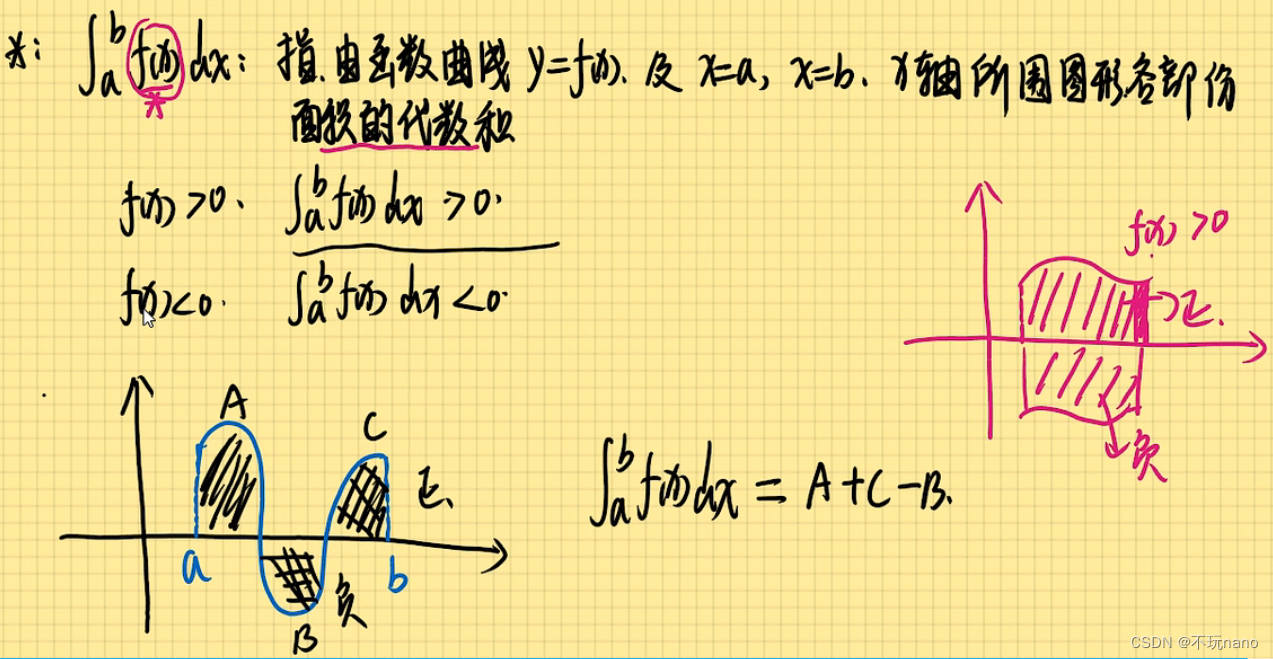 *: ∫ₐᵇ f(x) dx: 指.由函数曲线 y=f(x). 及 x=a, x=b. x轴所围图形各部份
*
面积的代数和
f(x)>0. ∫ₐᵇ f(x) dx >0.
f(x) >0
f(x)<0. ∫ₐᵇ f(x) dx <0.
→正.
A
C
负
正.
∫ₐᵇ f(x) dx = A+C-B.
a
b
负
B
CSDN @不玩nano